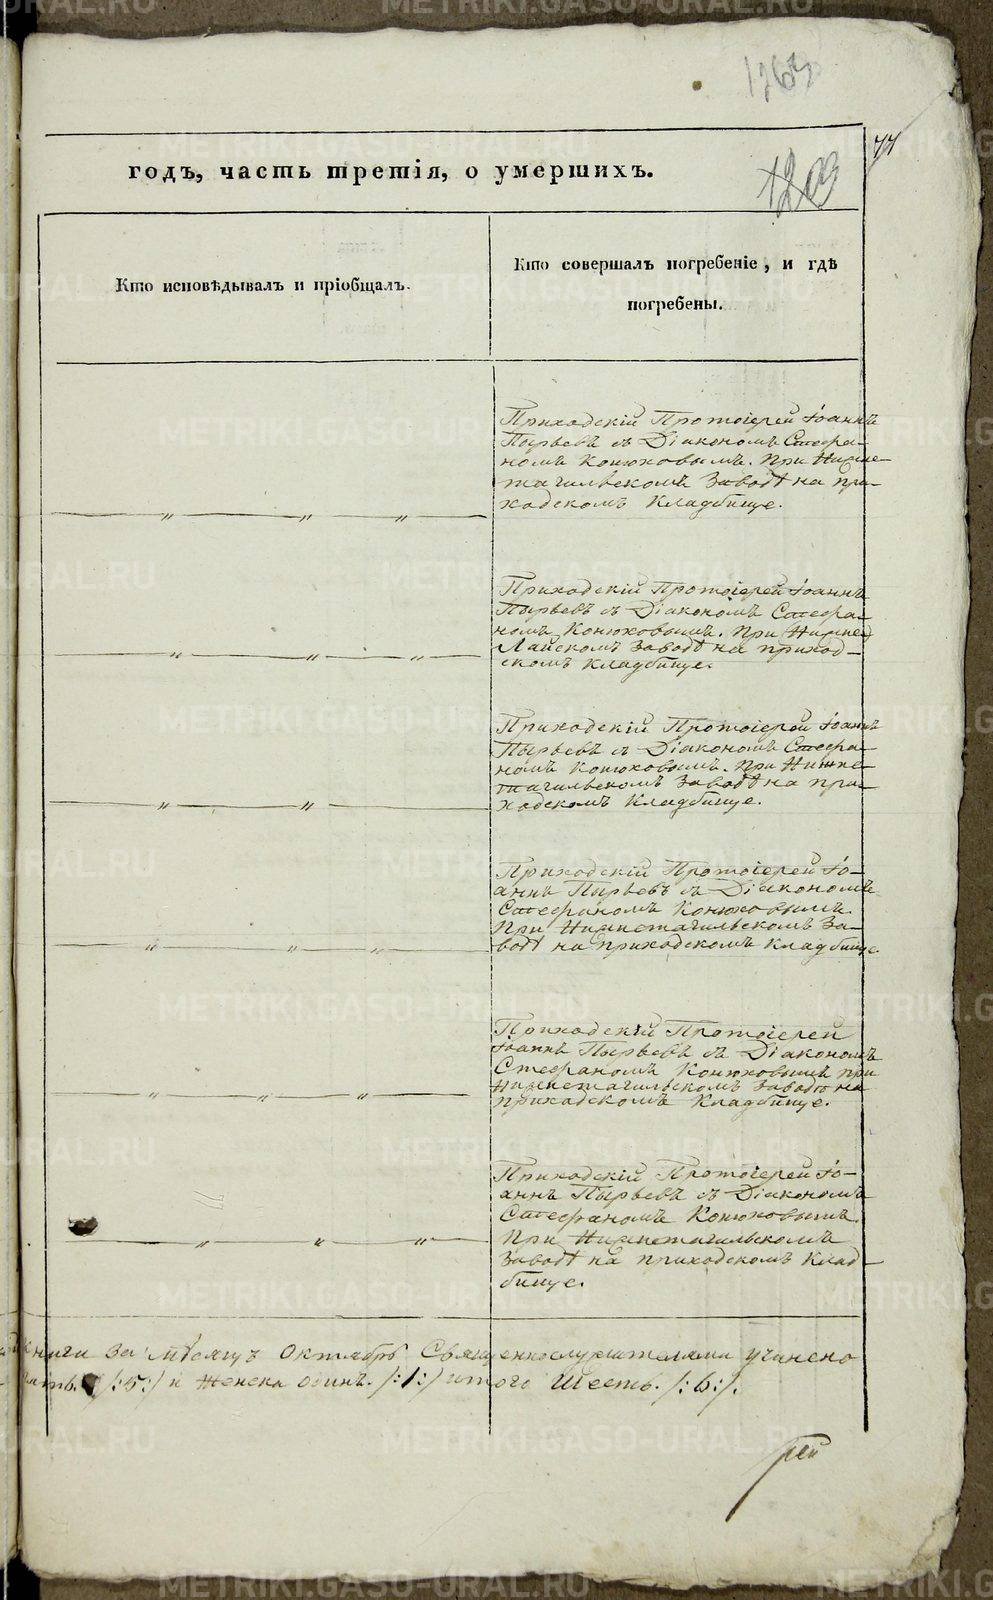 1263
77
годъ, часть третія, о умершихъ.
1209
Кто исповѣдывалъ и пріобщалъ.
Кто совершалъ погребеніе, и гдѣ
погребены.
Приходскій Протоіерей Іоаннъ
Пырьевъ съ Діакономъ Стефа-
номъ Конюховымъ. При Нижне-
тагильскомъ Заводѣ на при-
ходскомъ Кладбище.
Приходскій Протоіерей Іоаннъ
Пырьевъ съ Діакономъ Стефа-
номъ Конюховымъ. При Нижне
Лайскомъ Заводѣ на приход-
скомъ Кладбище.
Приходскій Протоіерей Іоаннъ
Пырьевъ съ Діакономъ Стефа-
номъ Конюховымъ. При Нижне-
тагильскомъ Заводѣ на при-
ходскомъ Кладбище.
Приходскій Протоіерей Іо-
аннъ Пырьевъ съ Діакономъ
Стефаномъ Конюховымъ.
При Нижнетагильскомъ За-
водѣ на приходскомъ Кладбище.
Приходскій Протоіерей
Іоаннъ Пырьевъ съ Діакономъ
Стефаномъ Конюховымъ при
Нижнетагильскомъ Заводѣ на
приходскомъ Кладбище.
Приходскій Протоіерей Іо-
аннъ Пырьевъ съ Діакономъ
Стефаномъ Конюховымъ.
При Нижнетагильскомъ
Заводѣ на приходскомъ Клад-
бище.
книги За мѣсяцъ Октябрь Священнослужителями учинено
/:5:/ и Женска одинъ. /:1:/ итого Шесть. /:6:/.
рей
METRIKI.GASO-URAL.RU